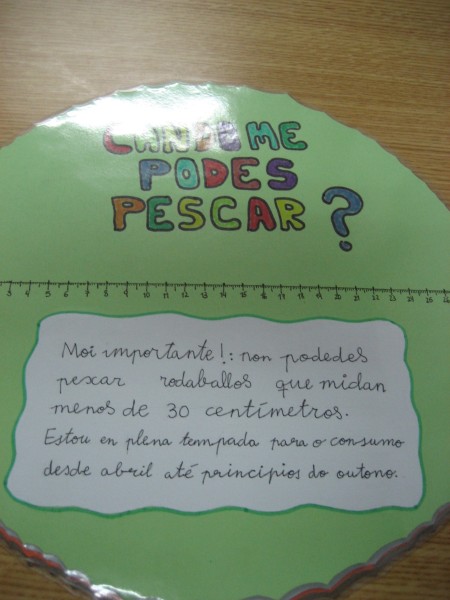 CANDO ME
PODES
PESCAR?
3 4 5 6 7 8 9 10 11 12 13 14 15 16 17 18 19 20 21 22 23 24 25 26
Moi importante!: non podedes
pexar rodaballos que midan
menos de 30 centímetros.
Estou en plena tempada para o consumo
desde abril até principios do outono.